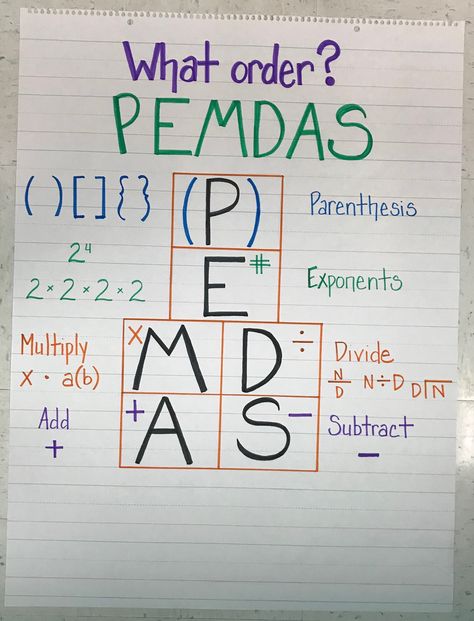 What order?
PEMDAS
( ) [ ] { } (P) Parenthesis
2⁴ E # Exponents
2 × 2 × 2 × 2
Multiply × M D ÷ Divide
x · a(b) N/D N÷D D⟌N
Add + A S − Subtract
+ −